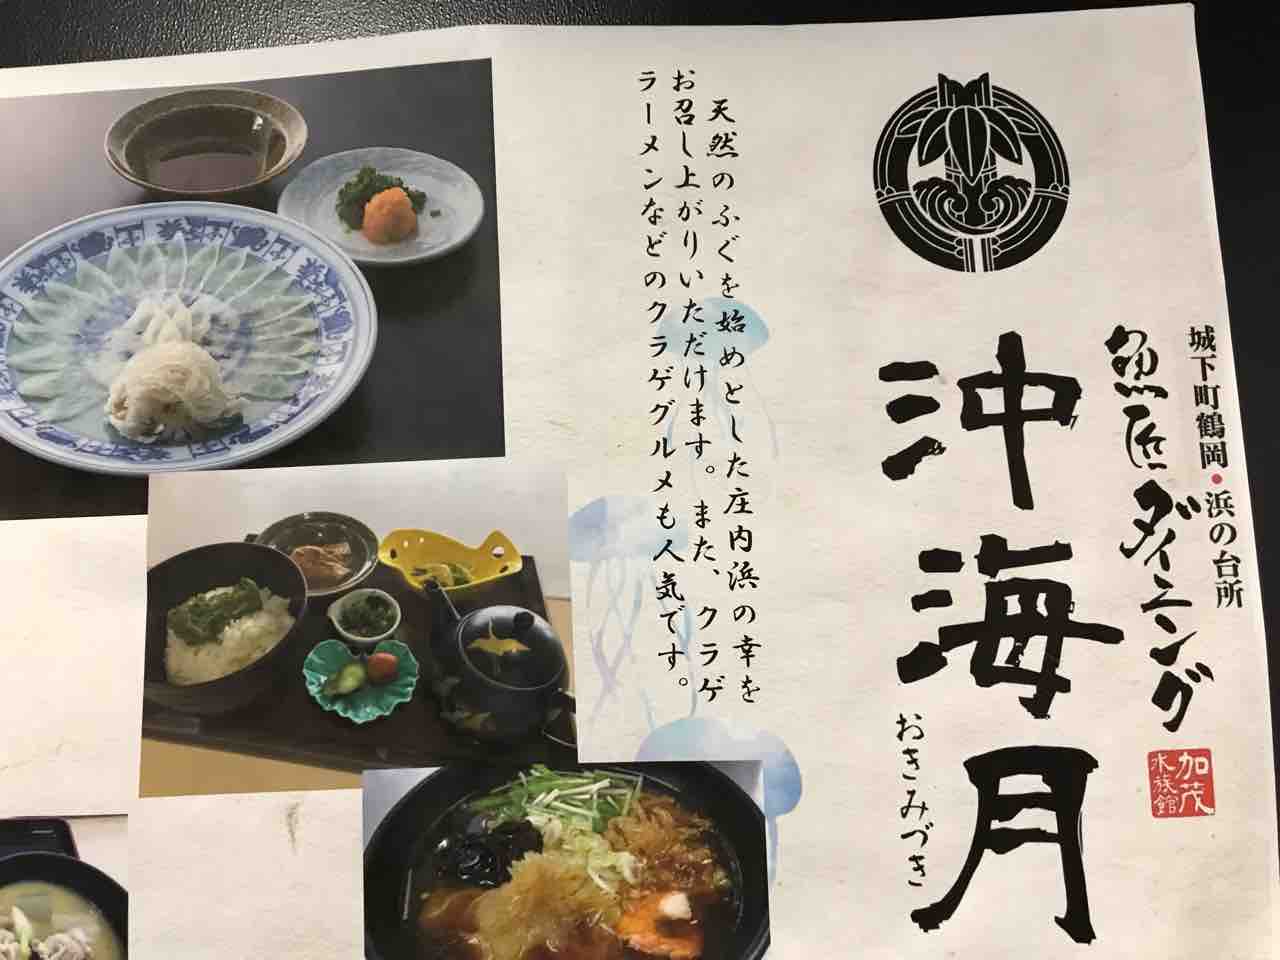 城下町鶴岡・浜の台所
魚匠ダイニング
沖海月
おきみづき
加茂
水族館
天然のふぐを始めとした庄内浜の幸を
お召し上がりいただけます。また、クラゲ
ラーメンなどのクラゲグルメも人気です。